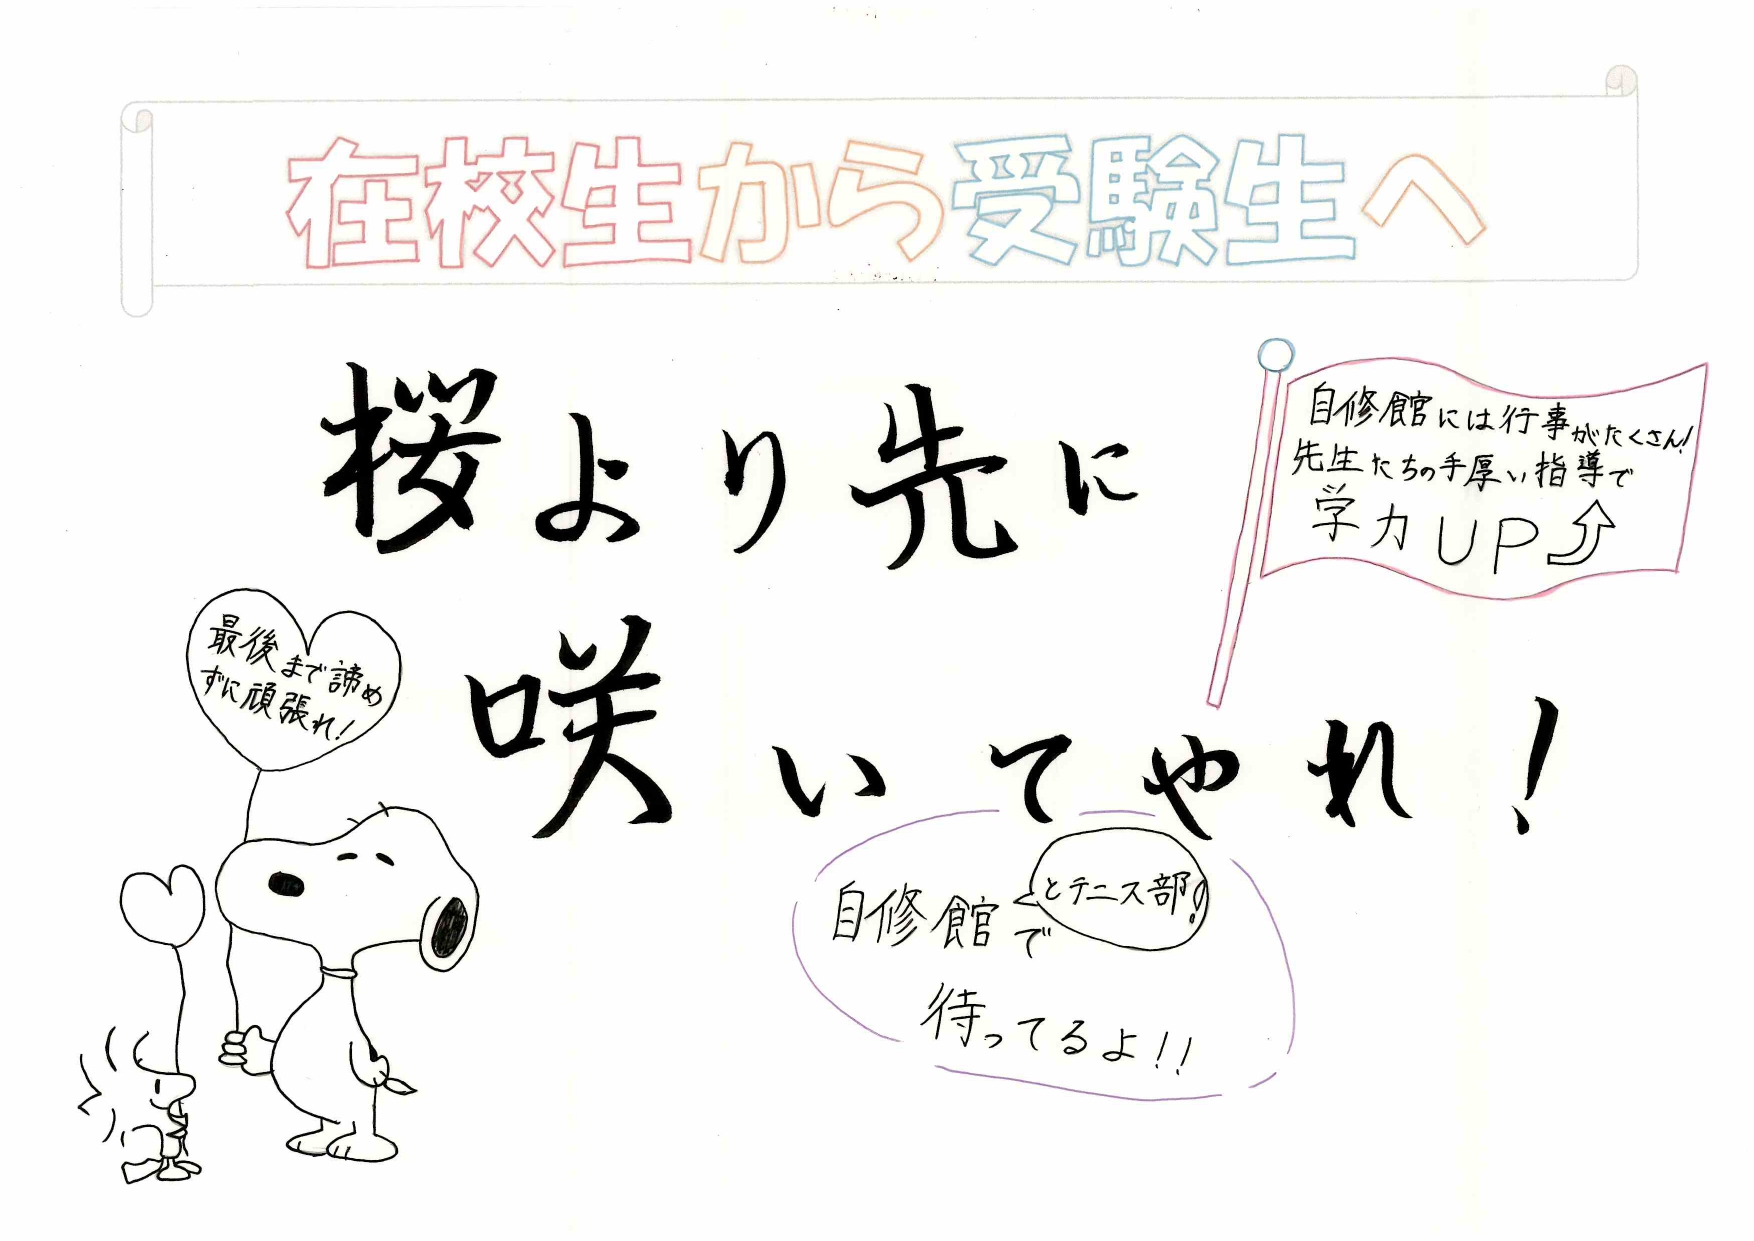 在校生から受験生へ
桜より先に
咲いてやれ!
自修館には行事がたくさん!
先生たちの手厚い指導で
学力UP
最後まで諦め
ずに頑張れ!
自修館で
とテニス部!
待ってるよ!!